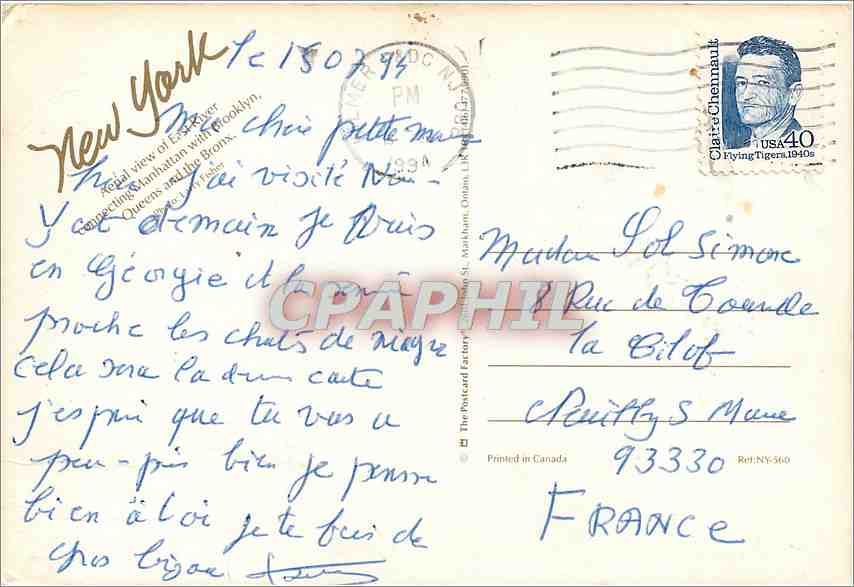 New York
Aerial view of East River
connecting Manhattan with Brooklyn,
Queens and the Bronx.
Photo: Larry Fisher
le 15 07 94
Ma chère petite
hier j'ai visité New-
York demain je suis
en Géorgie et la
proche les chutes de
cela sera la carte
j'espère que tu vas a
peu-près bien je pense
bien à toi je te fais de
gros bisou
CPAPHIL
© The Postcard Factory John St., Markham, Ontario, L3R
PM
1994
Claire Chennault
USA 40
Flying Tigers, 1940s
Madame Sol Simone
8 Rue de
la
Neuilly S Marne
93330
FRANCE
Printed in Canada
Ref: NY-560